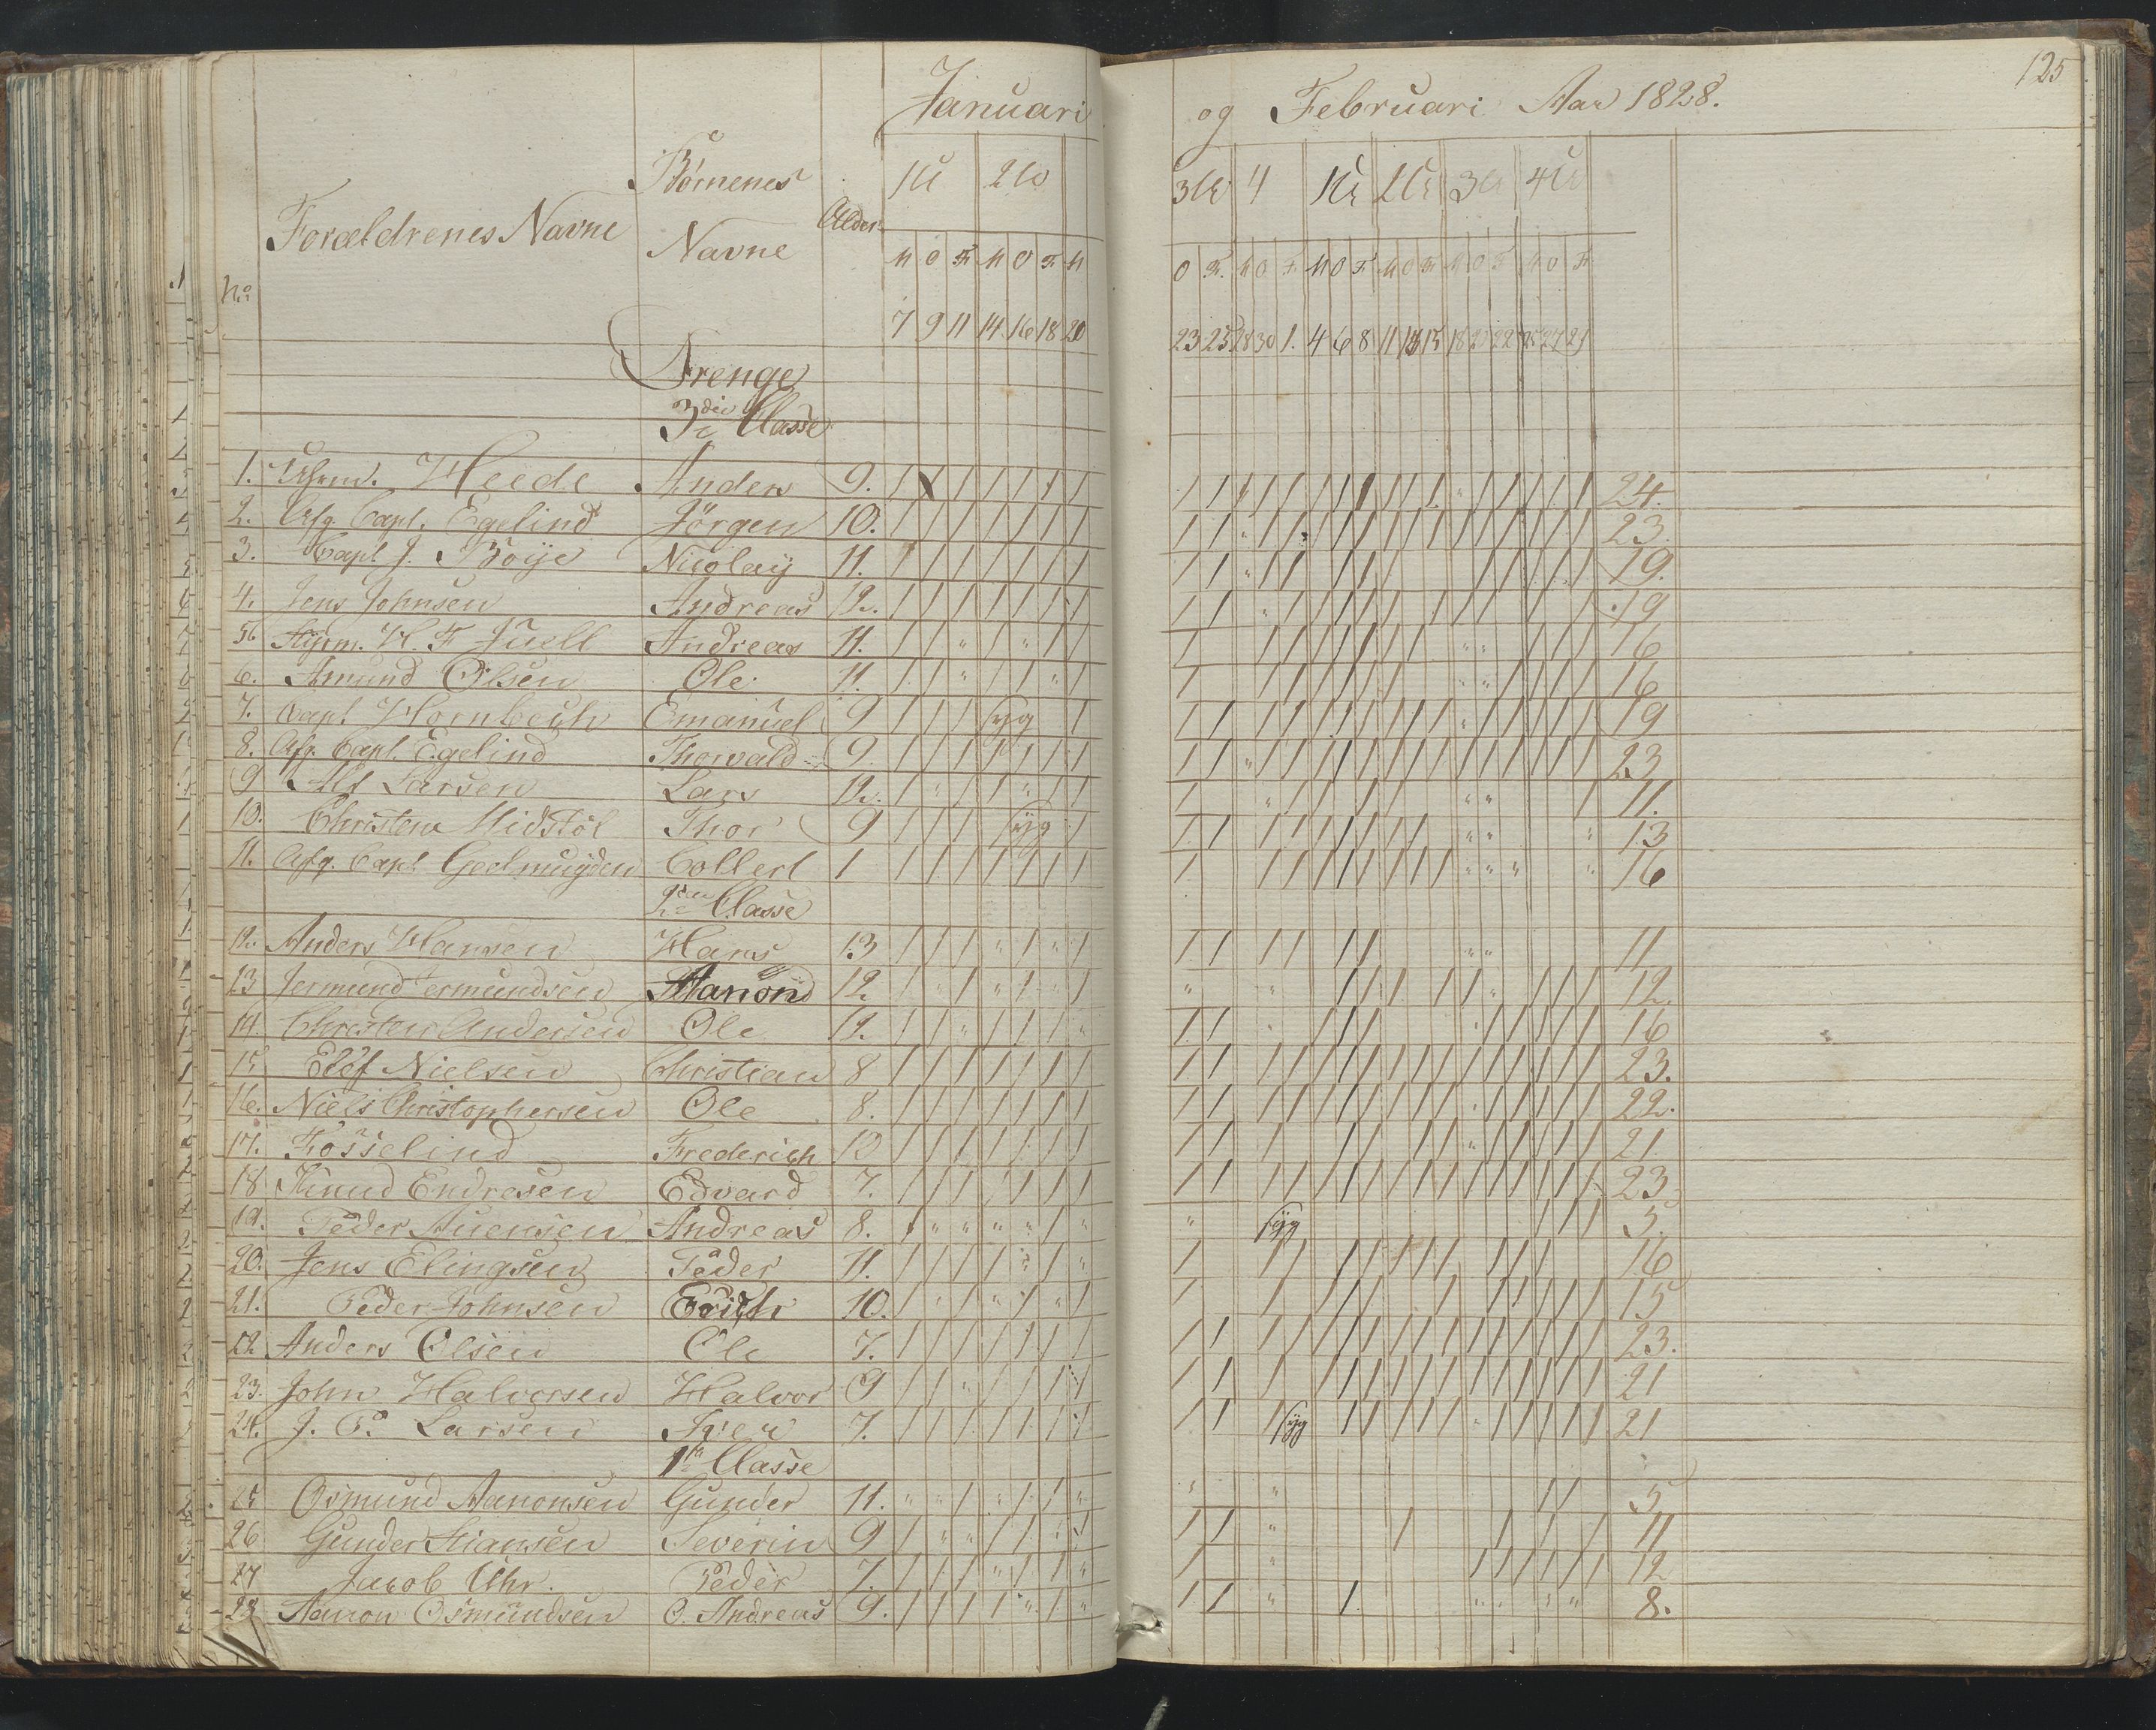 Januari og Februari Aar 1828.
125
No Forældrenes Navne Børnenes Navne Alder
1U 2U 3U 4 1U 2U 3U 4U
M O F M O F M O F M O F M O F M O F M O F M O F
7 9 11 14 16 18 20 23 25 28 30 1. 4 6 8 11 13 15 18 20 22 25 27 29
Drenge
3die Classe
1. Heede Anders 9. 24.
2. Afg. Capt. Egelind Jörgen 10. 23.
3. Capt J. Boije Nicolaij 11. 19.
4. Jens Johnsen Andreas 12. 19
5 Styrm. H. F Juell Andreas 11. 16
6. Amund Olsen Ole 11. 16
7. Capt Hornbech Emanuel 9 syg 19
8. Afg. Capt. Egelind Thorvald 9. 23
9 Alf Larsen Lars 12. 11.
10. Christen Midstöl Thor 9 syg 13
11. Afg. Capt Geelmuyden Collert 1 16
2den Classe
12. Anders Hansen Hans 13 11
13 Jermund Jermundsen Aanon 12. 12.
14. Christen Andersen Ole 12. 16
15 Elef Nielsen Christian 8 23.
16. Niels Christophersen Ole 8. 22.
17. Fosselind Frederich 10 21
18 Knud Endresen Edvard 7. 23
19. Peder Andreas 8. syg 5.
20. Jens Elingsen Peder 11. 16
21. Peder Johnsen Erich 10. 15
22 Anders Olsen Ole 7. 23.
23. John Halvorsen Halvor 9 21
24. J. P. Larsen Sven 7. syg 21
1ste Classe
25 Osmund Aanonsen Gunder 11. 5
26 Gunder Stiansen Severin 9 11
27 Jacob Uhr. Peder 7. 12
28 Aanon Osmundsen O. Andreas 9. 8.